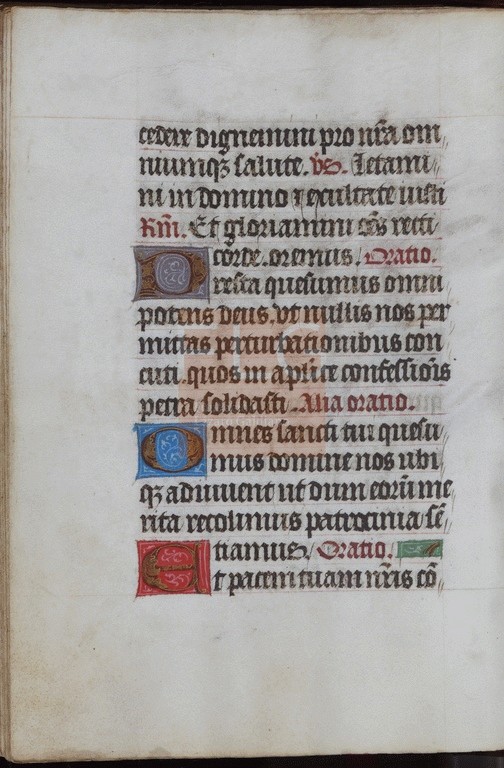 cedere dignemini pro nr̃a om
niumq̃ salute. vs̃. Letami
ni in domino ⁊ exultate iusti
Rm̃. Et gloriamini om̃s recti
corde. oremus. Oratio.
Presta quesumus omni
potens deus, vt nullis nos per
mittas perturbationibus con
cuti. quos in ap̃lice confessiõis
petra solidasti. Alia oratio.
Omnes sancti tui quesu
mus domine nos ubi
q̃ adiuuent ut dum eorũ me
rita recolimus patrocinia sẽ
tiamus. Oratio.
Et pacem tuam nr̃is cõ